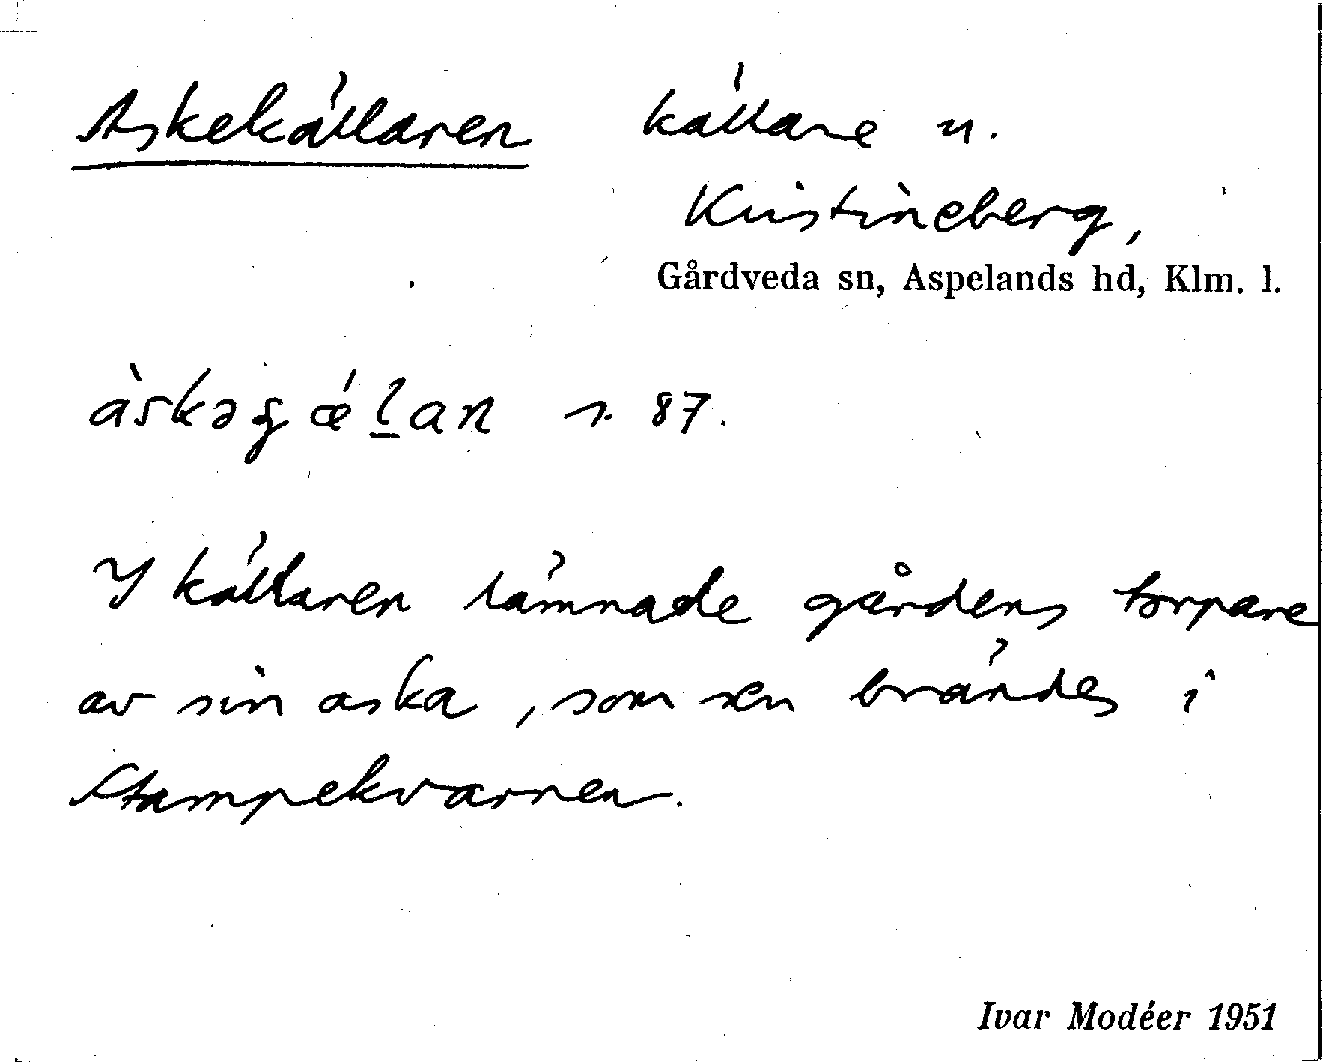 Askekällaren källare u.
Kristineberg,
Gårdveda sn, Aspelands hd, Klm. l.
àskəgǽl̲an s. 87.
I källaren lämnade gårdens torpare
av sin aska, som sen brändes i
Stampekvarnen.
Ivar Modéer 1951